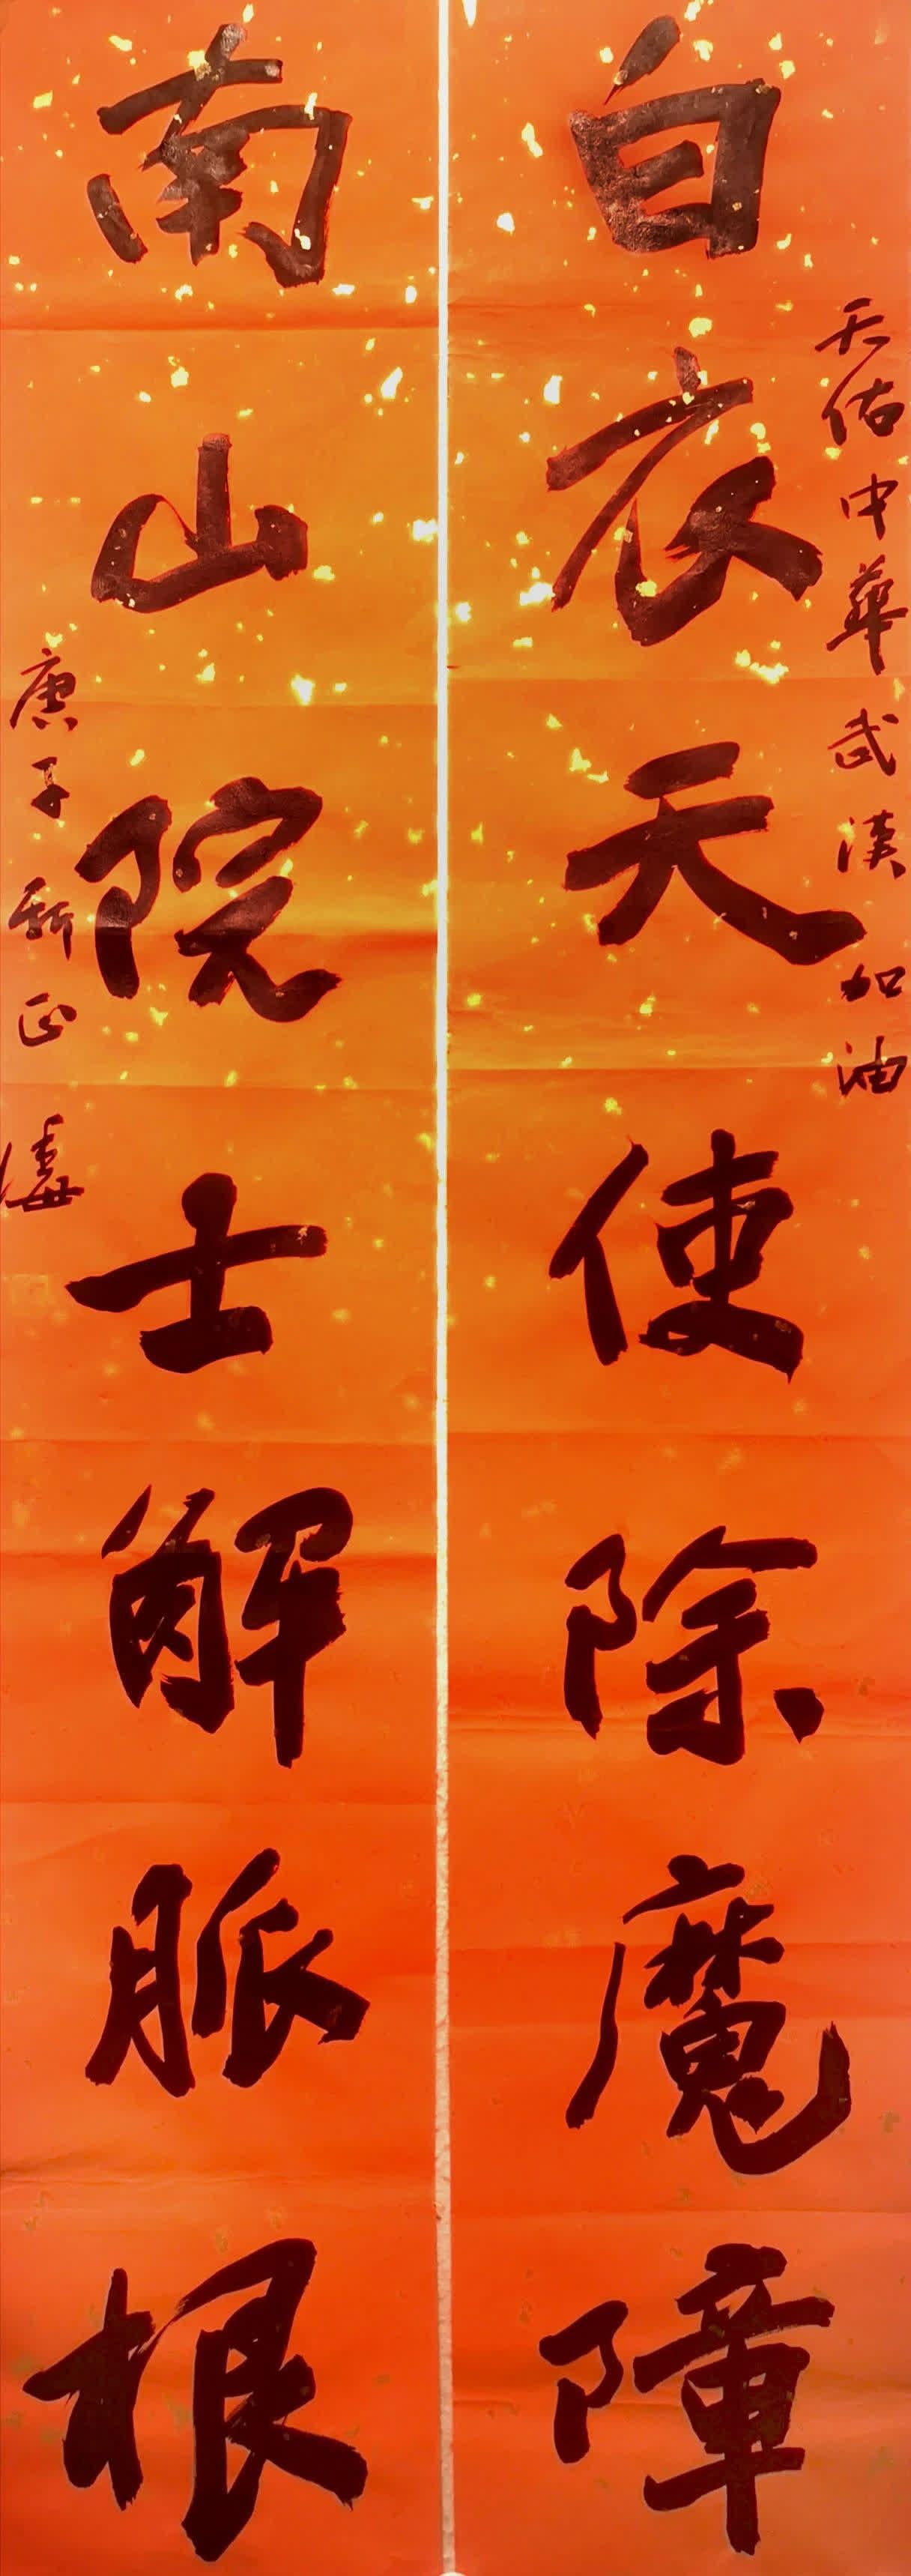 天佑中华武汉加油
白衣天使除魔障
南山院士解脈根
庚子新正